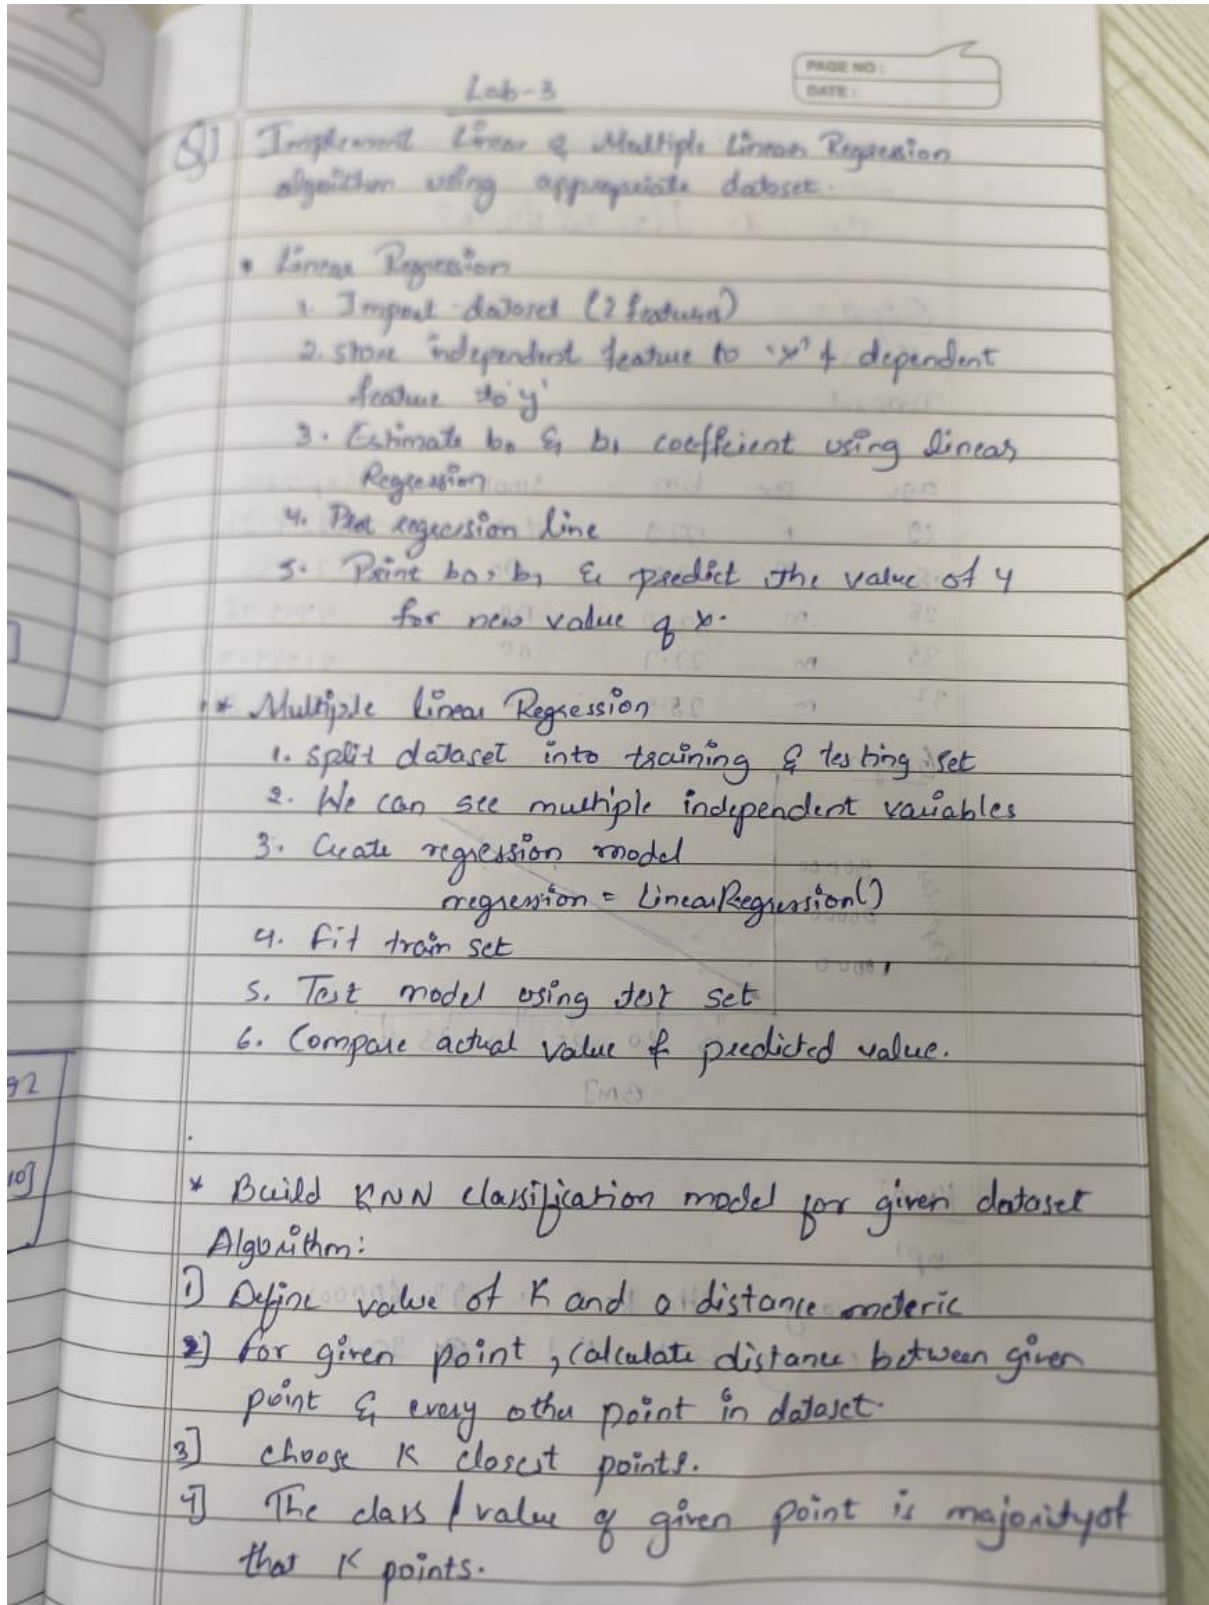 PAGE NO :
DATE :
Lab-3
Q1) Implement Linear & Multiple Linear Regression
algorithm using appropriate dataset.
* Linear Regression
1. Import dataset (2 features)
2. Store independent feature to 'x' & dependent
feature to 'y'
3. Estimate b0 & b1 coefficient using linear
Regression
4. Plot regression line
5. Print b0, b1 & predict the value of y
for new value of x.
* Multiple linear Regression
1. Split dataset into training & testing set
2. We can see multiple independent variables
3. Create regression model
regression = LinearRegression()
4. Fit train set
5. Test model using test set
6. Compare actual value & predicted value.
92
10]
* Build KNN classification model for given dataset
Algorithm:
1] Define value of K and a distance meteric
2] for given point, calculate distance between given
point & every other point in dataset.
3] choose K closest points.
4] The class / value of given point is majority of
that K points.